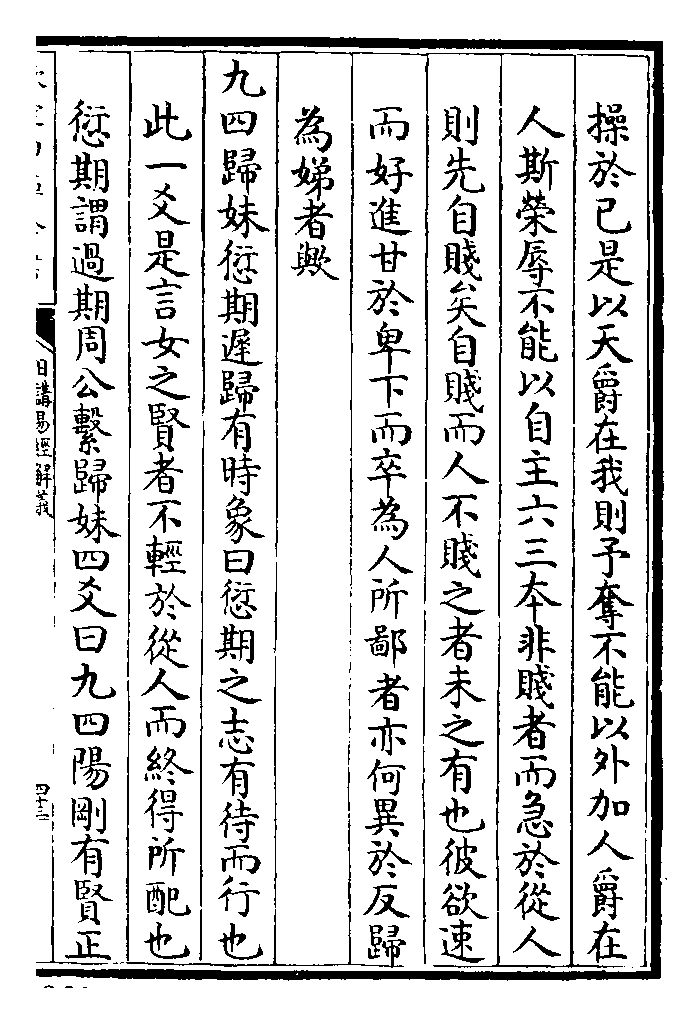 操於已是以天爵在我則予奪不能以外加人爵在
人斯榮辱不能以自主六三本非賤者而急於從人
則先自賤矣自賤而人不賤之者未之有也彼欲速
而好進甘於卑下而卒為人所鄙者亦何異於反歸
為娣者歟
九四歸妹愆期遲歸有時象曰愆期之志有待而行也
此一爻是言女之賢者不輕於從人而終得所配也
愆期謂過期周公繫歸妹四爻曰九四陽剛有賢正
日講易經解義
四十三